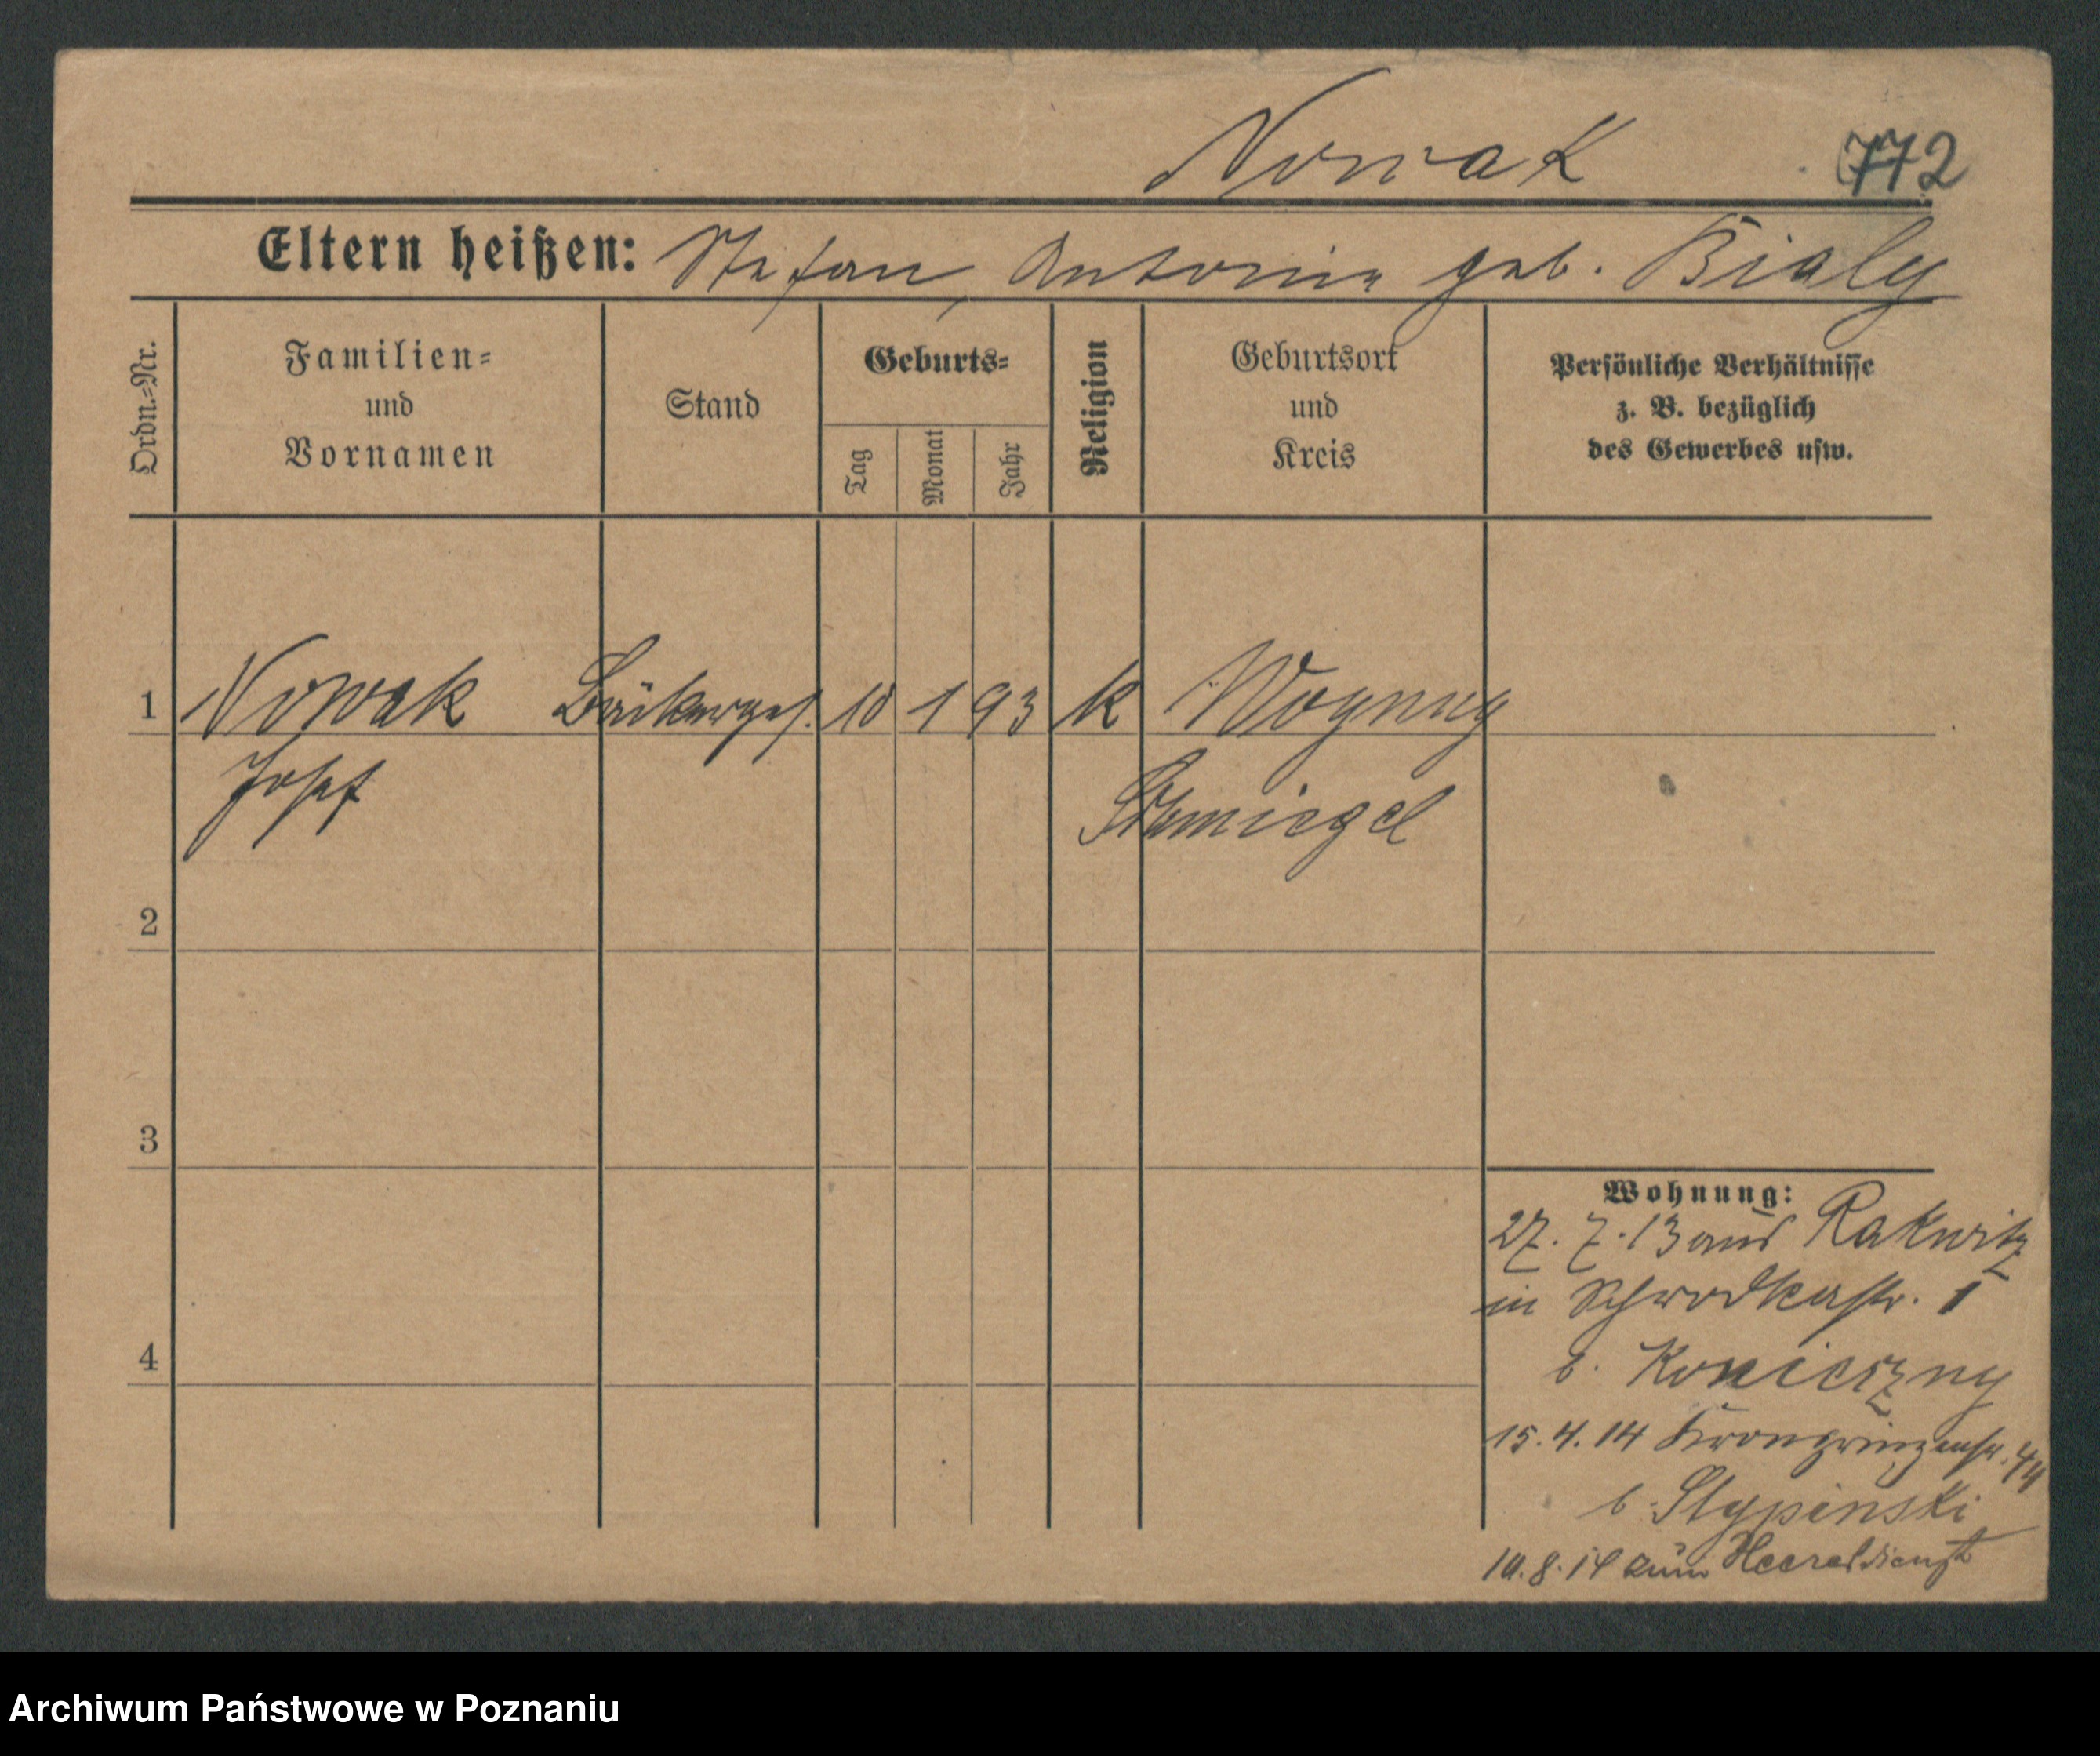 Nowak 772
Eltern heißen: Stefan, Antonie geb. Bialy
Ordn.=Nr.
Familien=
und
Vornamen
Stand
Geburts=
Tag
Monat
Jahr
Religion
Geburtsort
und
Kreis
Persönliche Verhältnisse
z. B. bezüglich
des Gewerbes usw.
1 Nowak Bäckerges. 10 1 93 k
Josef Schmiegel
2
3
4
Wohnung:
27. 7. 13 aus Rakwitz
in Schrodkastr. 1
b. Konieczny
15. 4. 14 Kronprinzenstr. 44
b. Stypinski
10. 8. 14 zum Heeresdienst
Archiwum Państwowe w Poznaniu